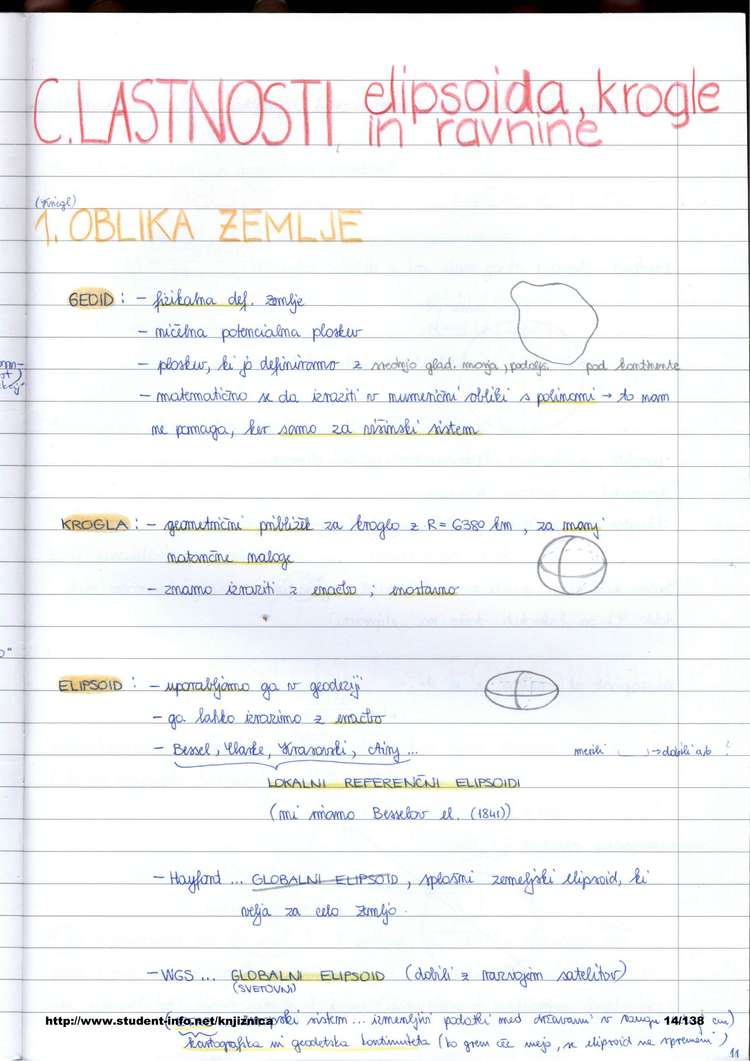 C. LASTNOSTI elipsoida, krogle
in ravnine
1. OBLIKA ZEMLJE
GEOID : - fizikalna def. zemlje
- ničelna potencialna ploskev
- ploskev, ki jo definiramo z srednjo glad. morja, podaljš. pod kontinente
- matematično se da izraziti v numerični obliki s polinomi → to nam
ne pomaga, ker samo za višinski sistem
KROGLA : - geometrični približek za kroglo z R = 6380 km , za manj
natančne naloge
- znamo izraziti z enačbo ; enostavno
ELIPSOID : - uporabljamo ga v geodeziji
- ga lahko izrazimo z enačbo
- Bessel, Clarke, Krasovski, Airy ...
merili → dobili a,b
LOKALNI REFERENČNI ELIPSOIDI
(mi imamo Besselov el. (1841))
- Hayford ... GLOBALNI ELIPSOID , splošni zemeljski elipsoid, ki
velja za celo zemljo.
- WGS ... GLOBALNI ELIPSOID (dobili z razvojem satelitov)
(SVETOVNI)
http://www.student-info.net/knjiznica
sistem ... izmenljivi podatki med državami v rangu
14/138
cm)
kartografska in geodetska kontinuiteta (ko grem čez mejo, se elipsoid ne spremeni)
11